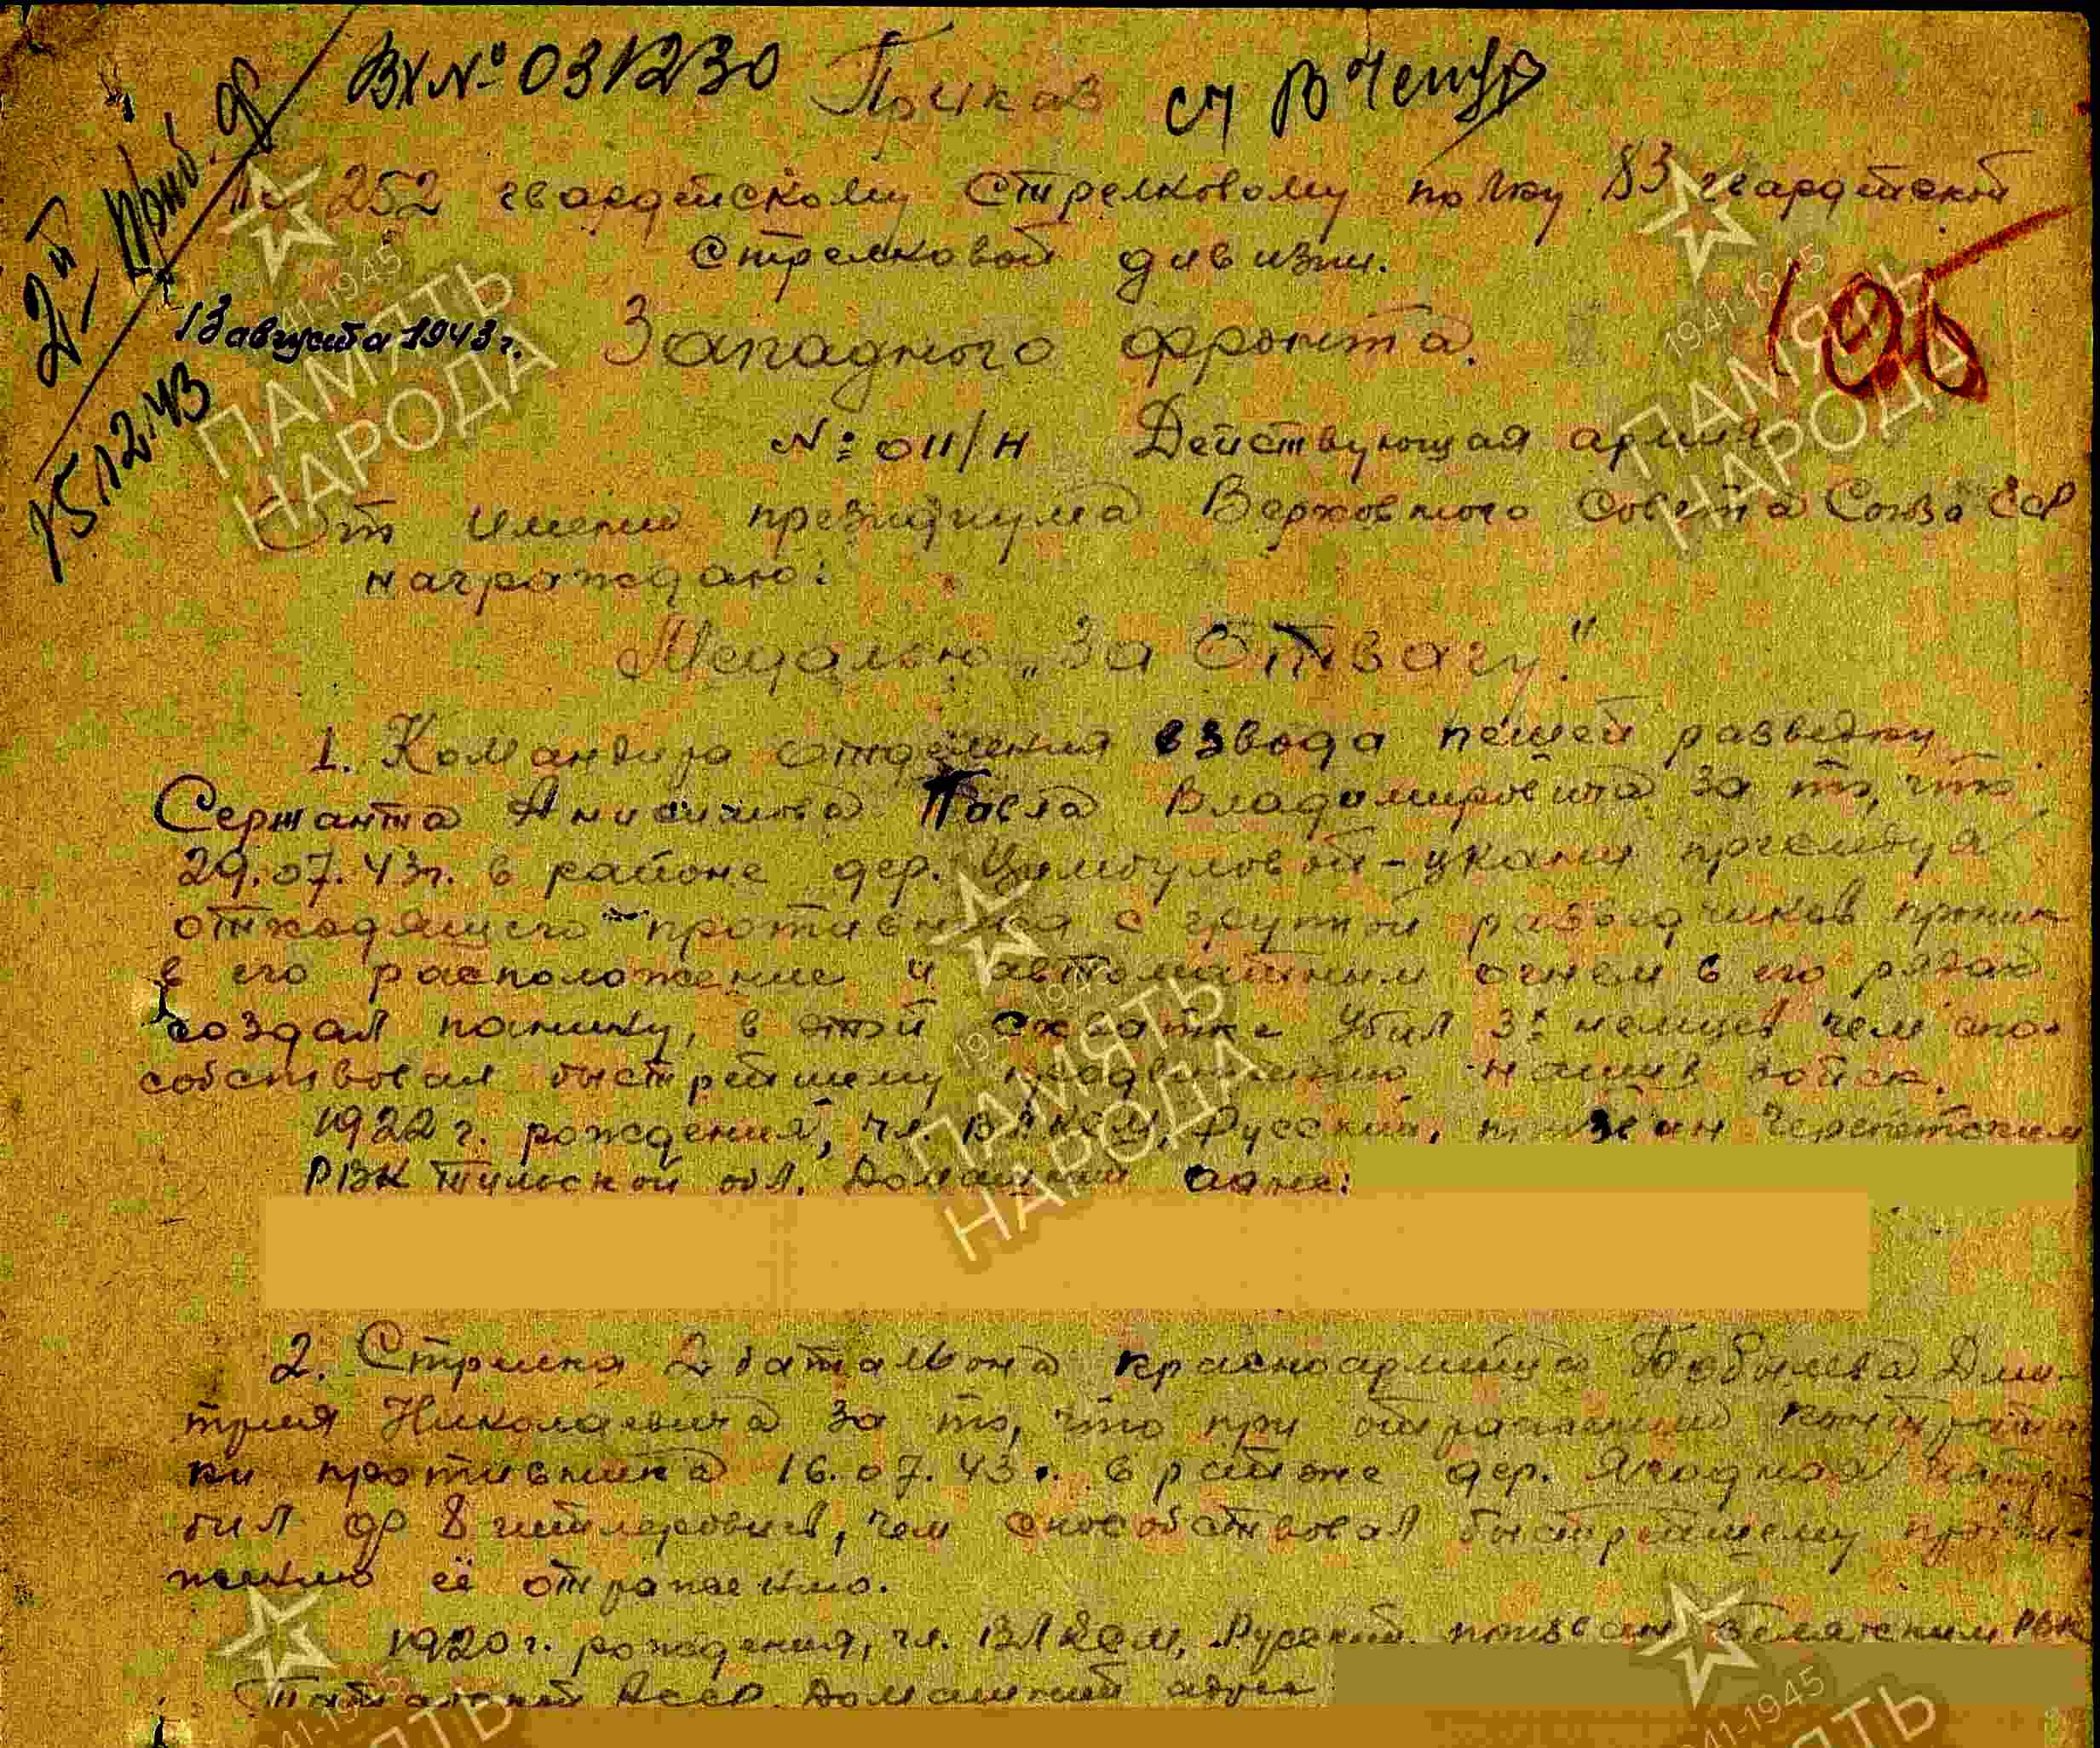 Вх № 031230
Приказ
2й
15.12.43
По 252 гвардейскому стрелковому полку 83 гвардейской
стрелковой дивизии.
13 августа 1943 г.
Западного фронта.
№ 011/Н Действующая армия
От имени президиума Верховного Совета Союза ССР
награждаю:
Медалью „За Отвагу."
1. Командира отделения взвода пешей разведки
Сержанта Анисимова Павла Владимировича за то, что
29.07.43г. в районе дер. преследуя
отходящего противника с группой разведчиков проник
в его расположение и автоматным огнем в его рядах
создал панику, в этой схватке убил 3х немцев чем спо-
собствовал быстрейшему продвижению наших войск.
1922 г. рождения, чл. ВЛКСМ, Русский, призван Черепетским
РВК Тульской обл. Домашний адрес:
2. Стрелка 2 батальона красноармейца Дми-
трия Николаевича за то, что при отражении контрата-
ки противника 16.07.43г. в районе дер. Ягодная истре-
бил до 8 гитлеровцев, чем способствовал быстрейшему
её отражению.
1920 г. рождения, чл. ВЛКСМ, Русский призван РВК
Татарской АССР Домашний адрес
1941-1945
ПАМЯТЬ
НАРОДА